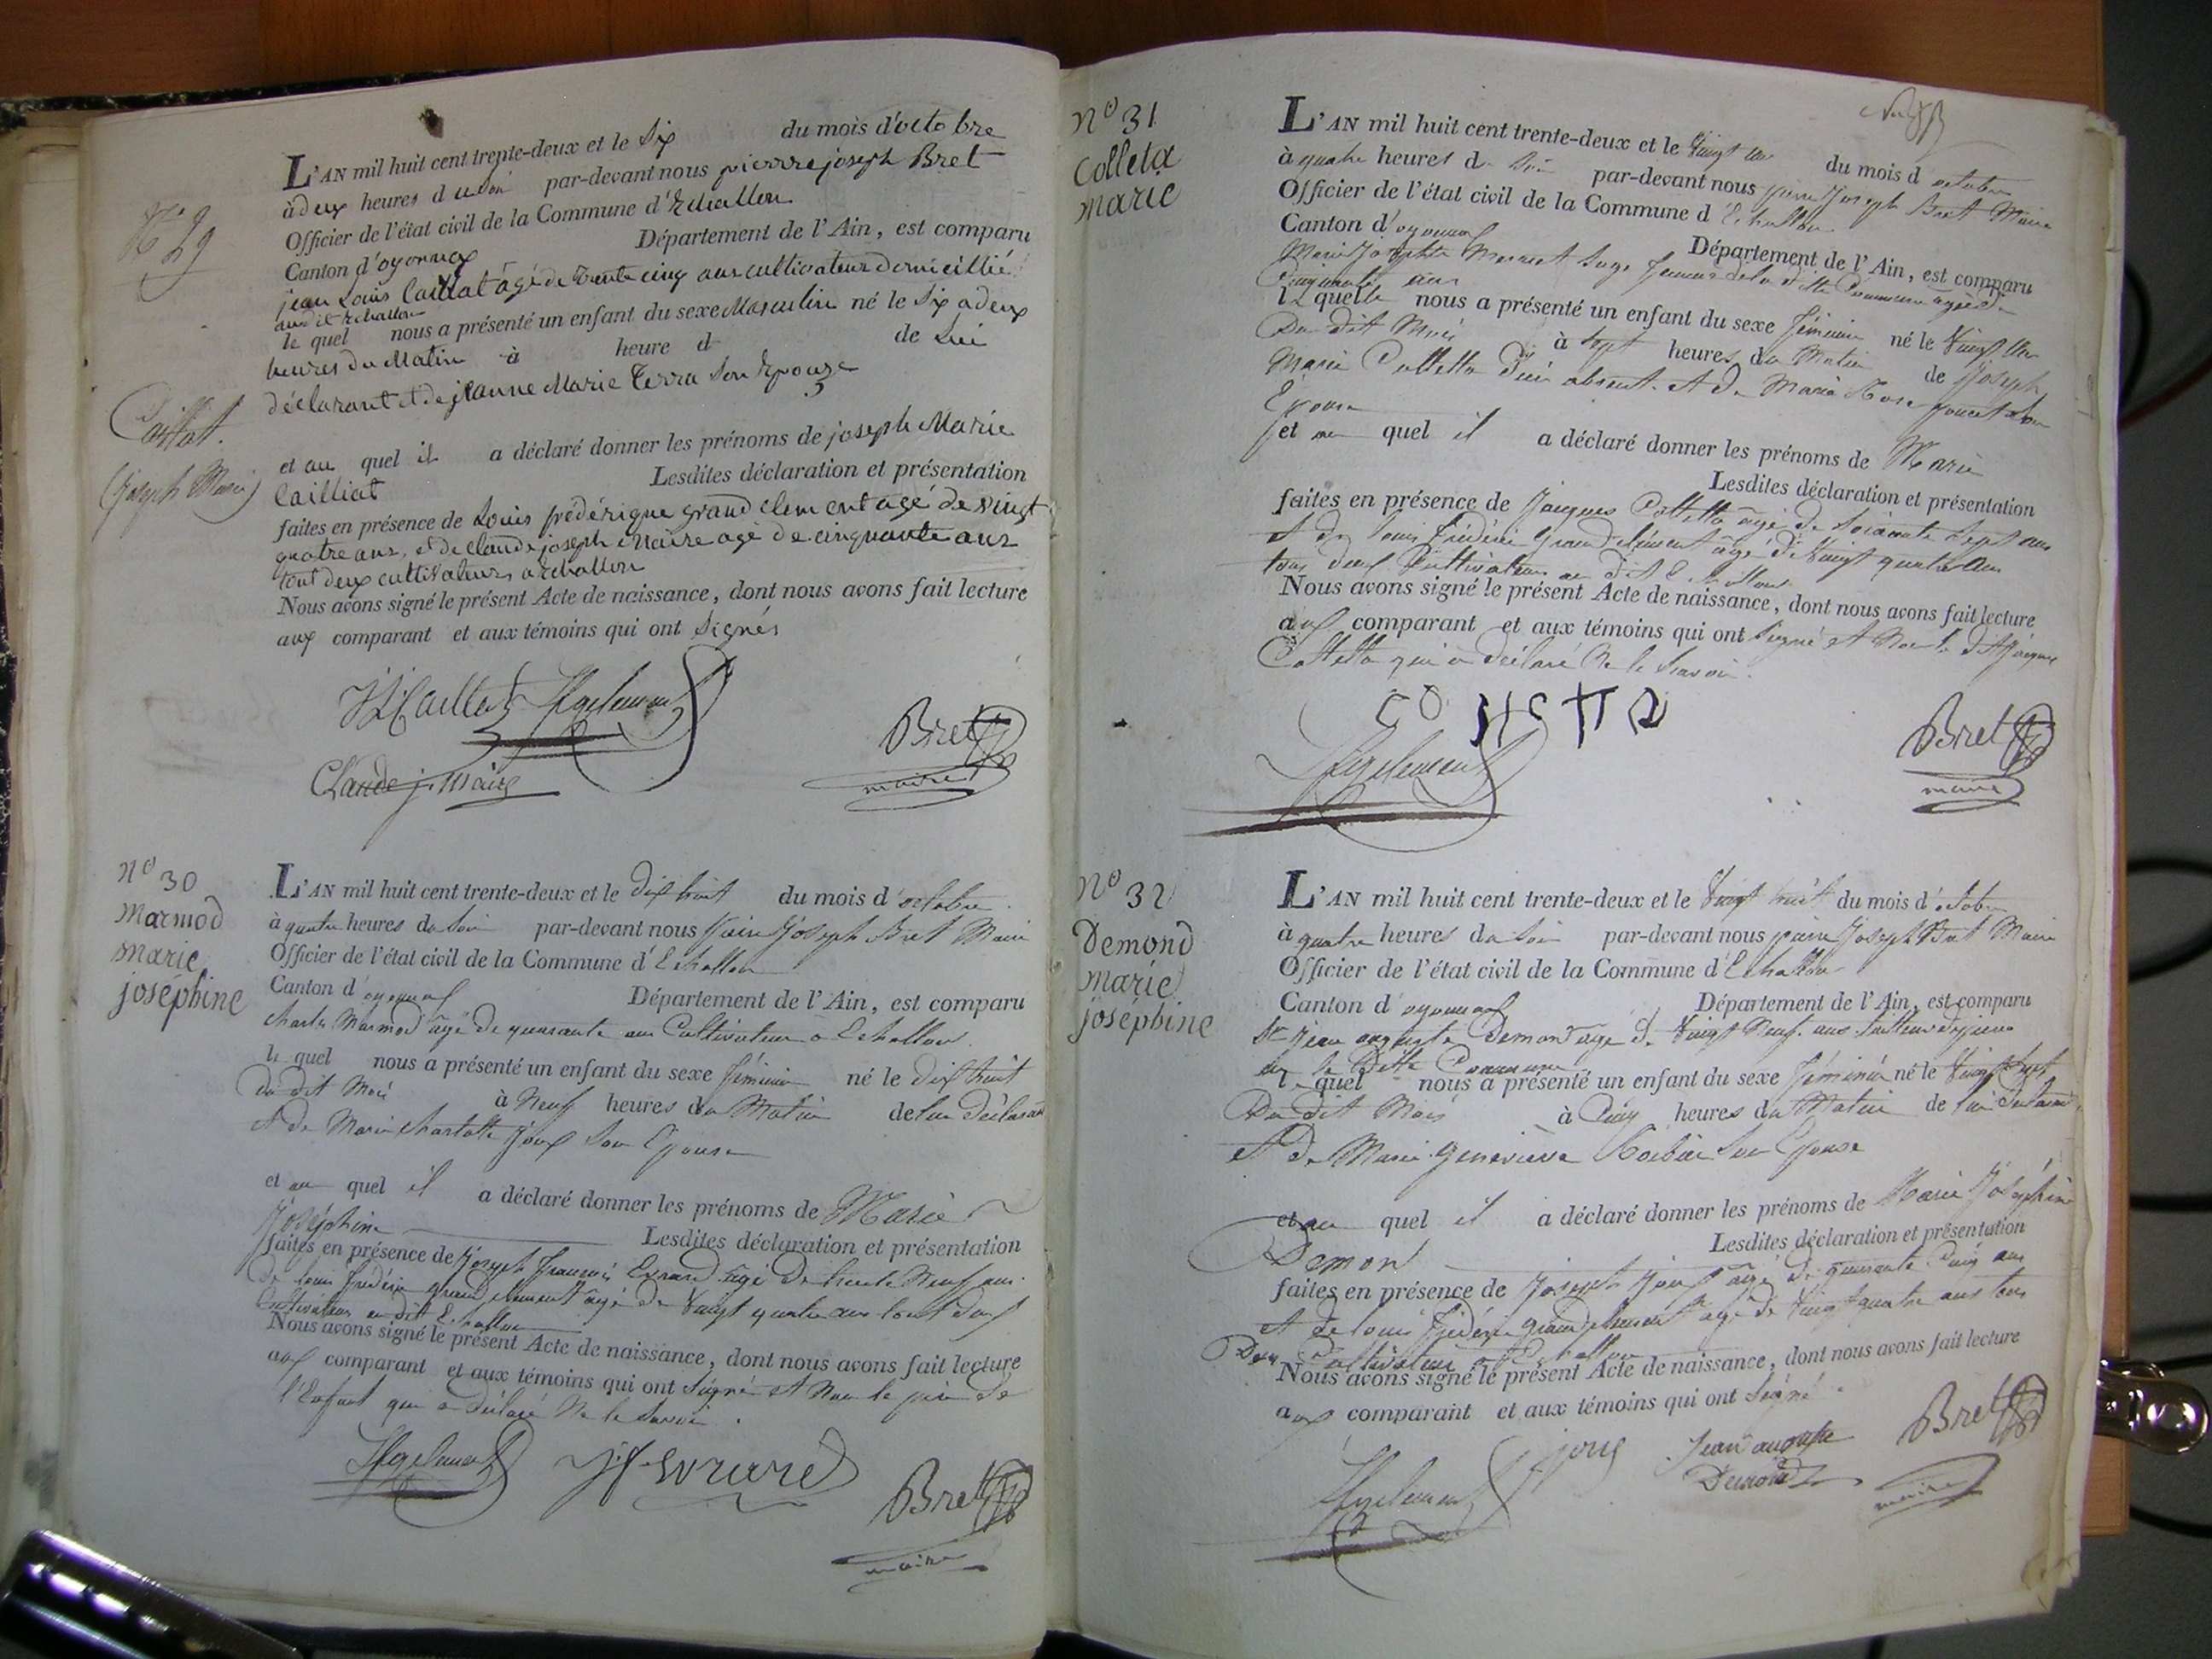 N° 29
Caillat.
(Joseph Marie)
L'AN mil huit cent trente-deux et le Six du mois d'octobre
à deux heures d u soir par-devant nous pierre joseph Bret
Officier de l'état civil de la Commune d'Echallon
Canton d'oyonnax Département de l'Ain, est comparu
jean Louis Caillat âgé de trente cinq ans cultivateur domicillié
audit Echallon
le quel nous a présenté un enfant du sexe Masculin né le Six a deux
heures du Matin à heure d de Lui
déclarant et de jeanne Marie Terra Son Epouze
et au quel il a déclaré donner les prénoms de joseph Marie
Cailliat Lesdites déclaration et présentation
faites en présence de Louis frédérique grand clement agé de vingt
quatre ans, et de Claude joseph Maire agé de cinquante ans
tout deux cultivateurs a Echallon
Nous avons signé le présent Acte de naissance, dont nous avons fait lecture
aux comparant et aux témoins qui ont Signés
JL Caillat
Claude j. Maire
Bret
maire
N° 30
Marmod
marie
joséphine
L'AN mil huit cent trente-deux et le dix huit du mois d'octobre
à quatre heures du Soir par-devant nous Pierre Joseph Bret Maire
Officier de l'état civil de la Commune d'Echallon
Canton d'oyonnax Département de l'Ain, est comparu
charles Marmod âgé de quarante ans Cultivateur à Echallon
le quel nous a présenté un enfant du sexe féminin né le dix huit
du dit Mois à Neuf heures du Matin de lui déclarant
et de Marie charlotte Joux Son Epouse
et au quel il a déclaré donner les prénoms de Marie
Joséphine Lesdites déclaration et présentation
faites en présence de Joseph françois Evrard âgé de trente Neuf ans
de louis frédéric grand clement âgé de Vingt quatre ans tout deux
Cultivateurs au dit Echallon
Nous avons signé le présent Acte de naissance, dont nous avons fait lecture
aux comparant et aux témoins qui ont Signé et Non le père de
l'Enfant qui a déclaré Ne le Savoir.
Bret
maire
N° 31
Colleta
marie
L'AN mil huit cent trente-deux et le Vingt un du mois d'octobre
à quatre heures du Soir par-devant nous pierre Joseph Bret Maire
Officier de l'état civil de la Commune d'Echallon
Canton d'oyonnax Département de l'Ain, est comparu
Marie Josephte Sage femme de la ditte Commune agée de
Cinquante ans
la quelle nous a présenté un enfant du sexe féminin né le Vingt un
Du dit Mois à Sept heures du Matin de Joseph
Marie Colletta absent. et de Marie Rose poncet Son
Epouse
et au quel il a déclaré donner les prénoms de Marie
Lesdites déclaration et présentation
faites en présence de Jacques Colletta âgé de Soixante Sept ans
et de louis frédéric Grand clément âgé de Vingt quatre ans
tous deux Cultivateurs au dit Echallon
Nous avons signé le présent Acte de naissance, dont nous avons fait lecture
aux comparant et aux témoins qui ont Signé et Non le dit Jacques
Colletta qui a déclaré Ne le Savoir.
Bret
maire
N° 32
Demond
marie
joséphine
L'AN mil huit cent trente-deux et le Vingt huit du mois d'octobre
à quatre heures du Soir par-devant nous pierre Joseph Bret Maire
Officier de l'état civil de la Commune d'Echallon
Canton d'oyonnax Département de l'Ain, est comparu
Sr Jean auguste Demond âgé de Vingt Neuf ans
de la Ditte Commune
le quel nous a présenté un enfant du sexe féminin né le Vingt huit
Du dit Mois à Cinq heures du Matin de lui Déclarant,
et De Marie Geneviève Son Epouse
et au quel il a déclaré donner les prénoms de Marie Joséphine
Demond Lesdites déclaration et présentation
faites en présence de Joseph Joux âgé de quarante Cinq ans
et de louis frédéric Grand clément agé de Vingt quatre ans tous
Deux Cultivateurs à Echallon
Nous avons signé le présent Acte de naissance, dont nous avons fait lecture
aux comparant et aux témoins qui ont Signé.
joux
Jean auguste
Demond
Bret
maire